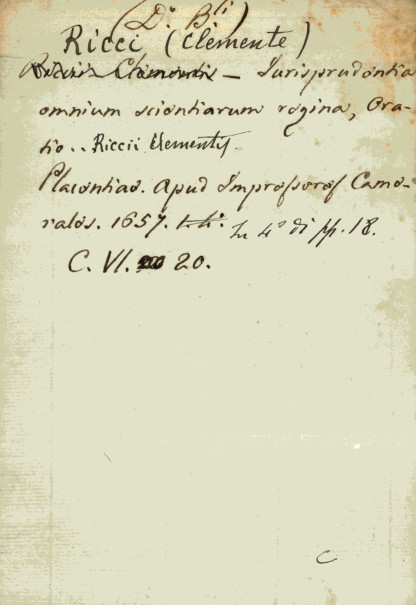 (Dr. Bti)
Ricci (Clemente)
Riccii Clementis — Jurisprudentia
omnium scientiarum regina, Ora-
tio.. Riccii Clementis.
Placentiae. Apud Impressores Came-
rales. 1657. In 4° di pp. 18.
C. VI. 20.
C